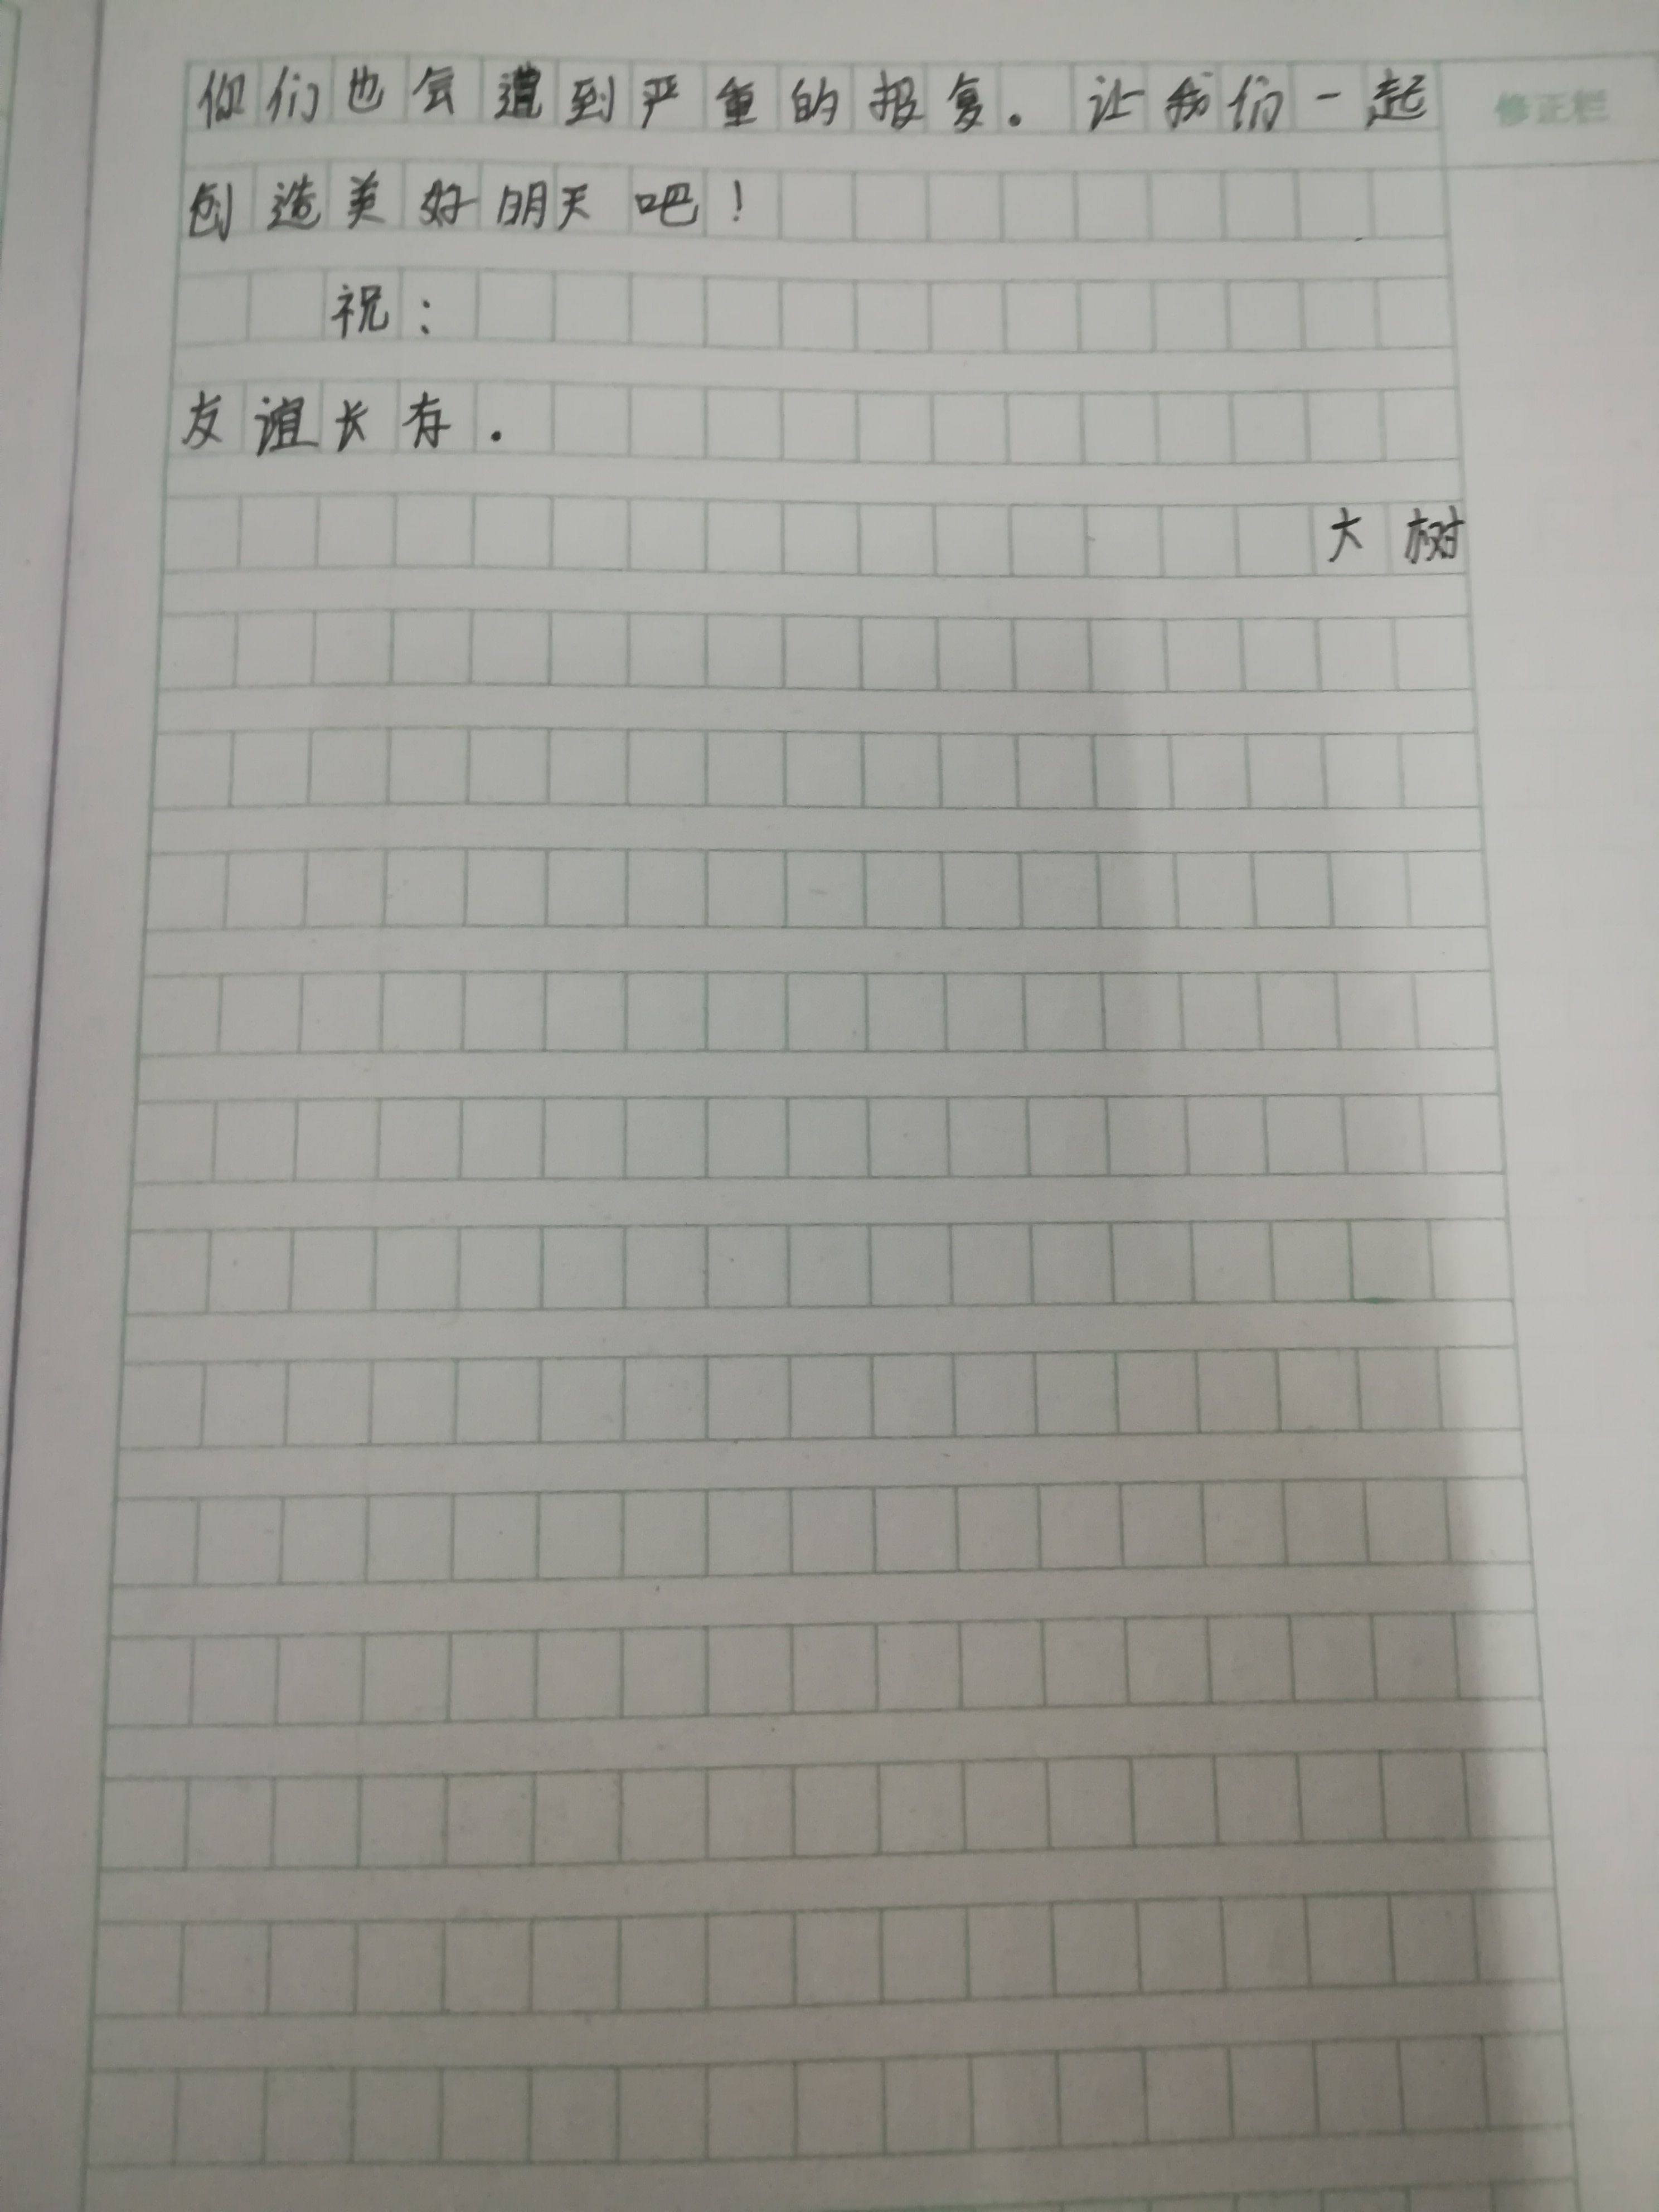 你们也会遭到严重的报复。让我们一起
修正栏
创造美好明天吧！
祝：
友谊长存.
大树